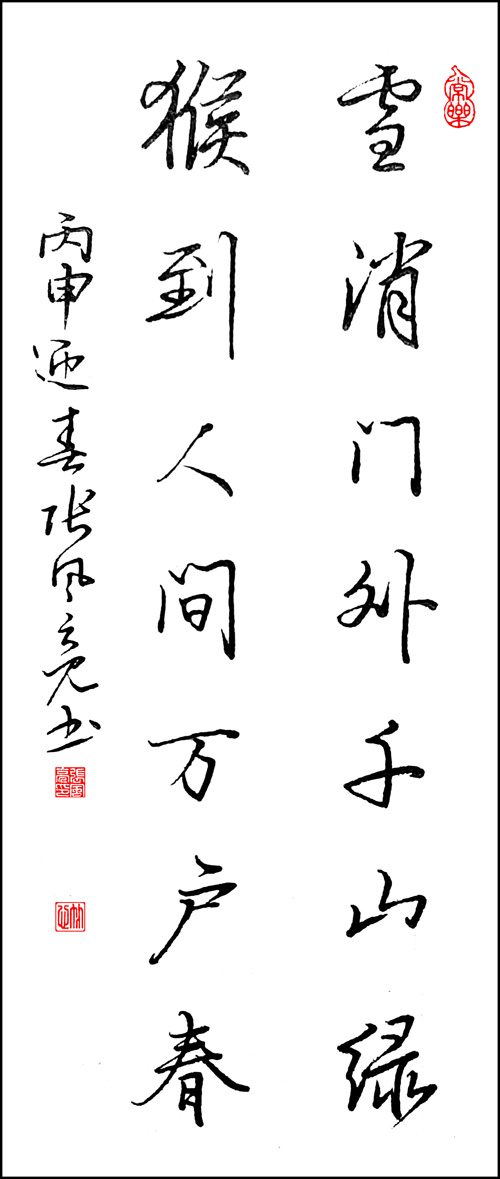 雪消门外千山绿
猴到人间万户春
丙申迎春张风亮书
常乐